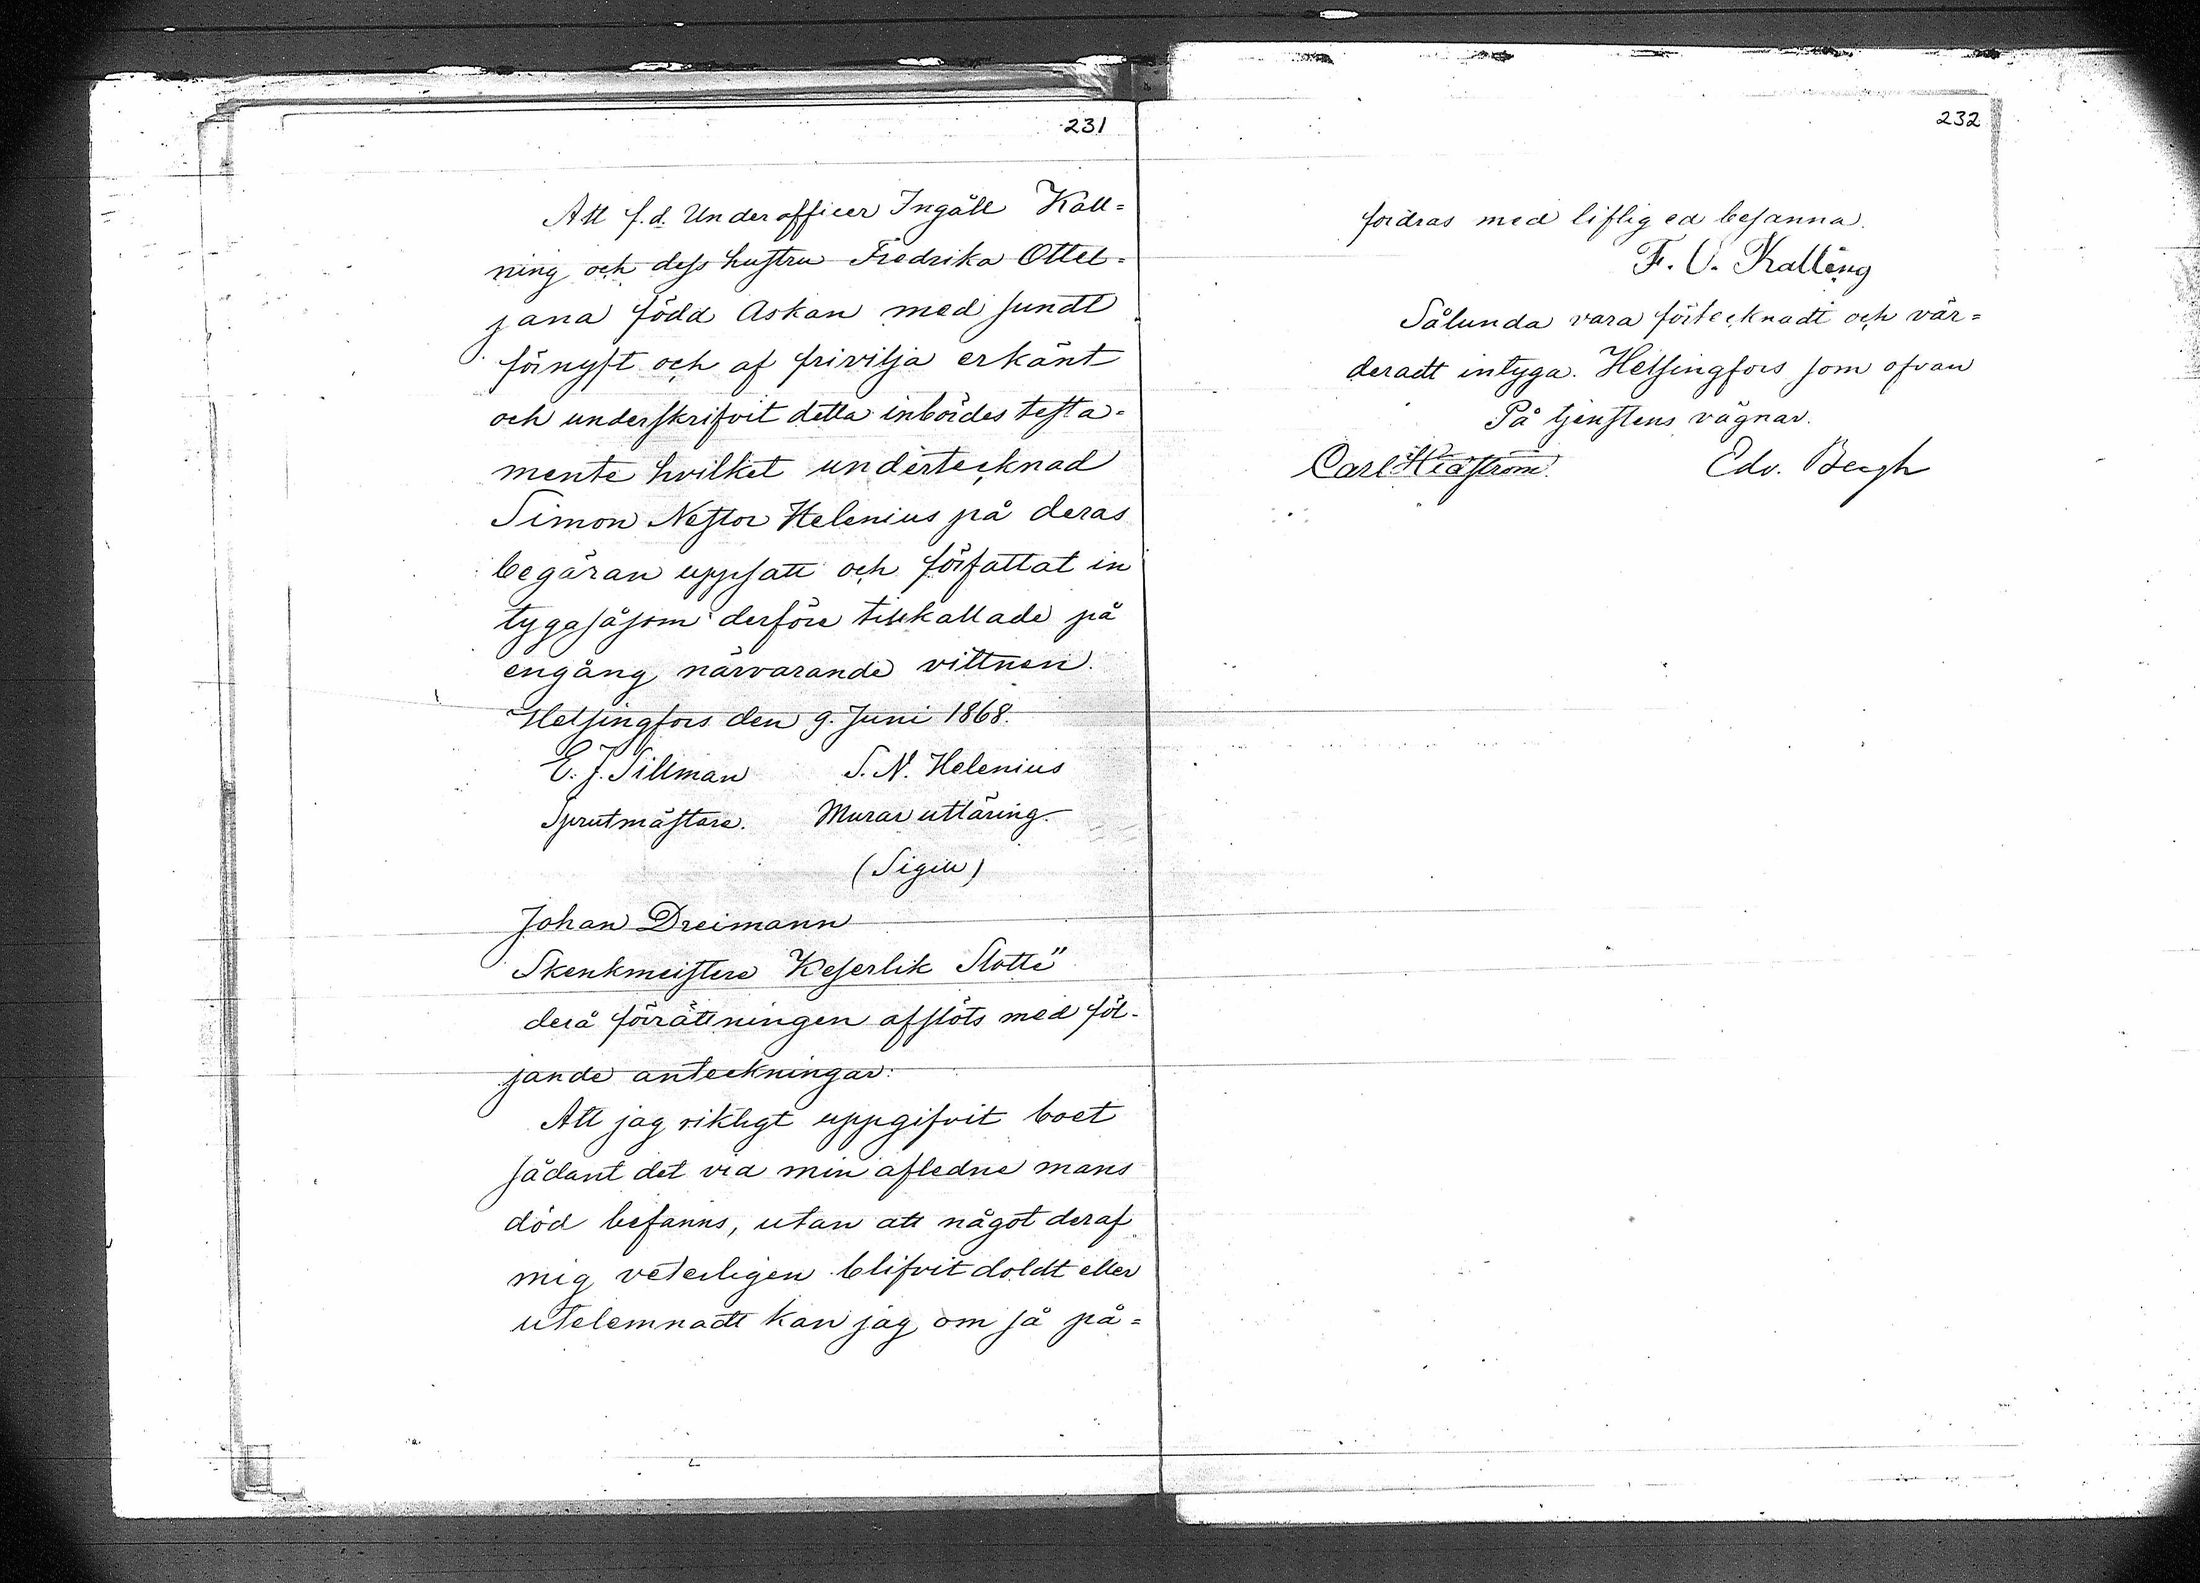 231
Att f.d. Underofficer Ingåll Kall=
ning och dess hustru Fredrika Ottel=
jana född Askan med sundt
förnuft och af frivilja erkänt
och underskrifvit detta inbördes testa=
mente hvilket undertecknad
Simon Nestor Helenius på deras
begäran uppsatt och författat in
tyga såsom derföre tillkallade på
engång närvarande vittnen.
Helsingfors den 9. Juni 1868.
E. J. Sillman S. N. Helenius
Sprutmästare. Murar utläring
(Sigill)
Johan Dreimann
Skenkmeistere Keserlik Slotte"
derå förrättningen afslöts med föl-
jande anteckningar:
Att jag riktigt uppgifvit boet
sådant det vid min afledne mans
död befanns, utan att något deraf
mig veterligen blifvit doldt eller
utelemnadt kan jag om så på=
232
fordras med liflig ed besanna.
F. O. Kalling
Sålunda vara förtecknadt och vär=
deradt intyga. Helsingfors som ofvan
På tjenstens vägnar.
Carl Hedström. Edv. Bergh